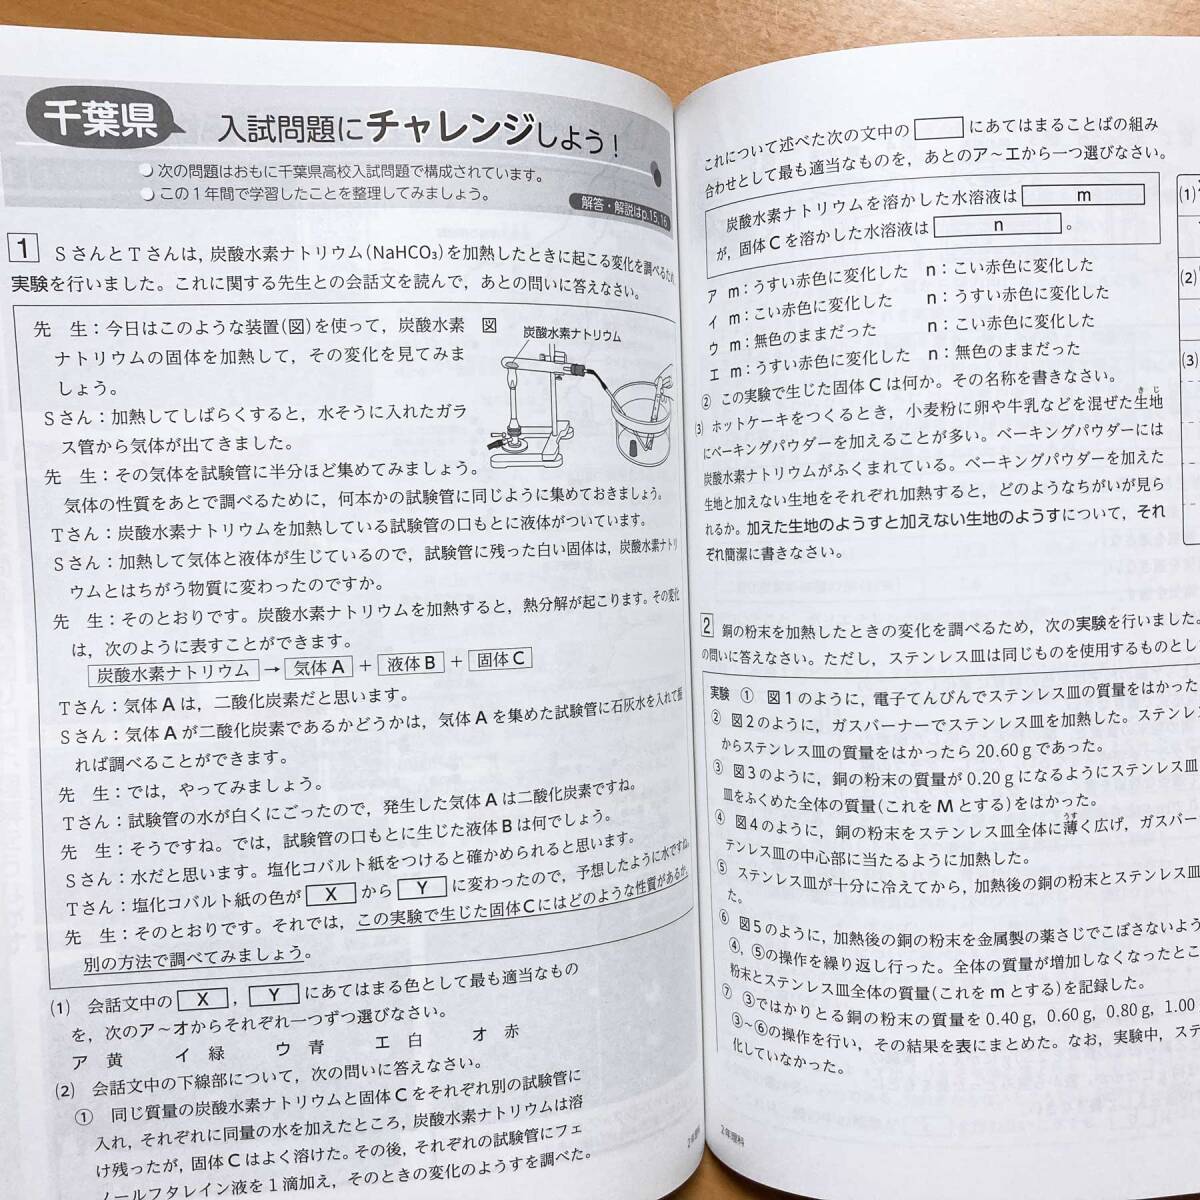 千葉県
入試問題にチャレンジしよう！
次の問題はおもに千葉県高校入試問題で構成されています。
この1年間で学習したことを整理してみましょう。
解答・解説はp.15,16
1 SさんとTさんは，炭酸水素ナトリウム(NaHCO₃)を加熱したときに起こる変化を調べるため，
実験を行いました。これに関する先生との会話文を読んで，あとの問いに答えなさい。
先 生：今日はこのような装置(図)を使って，炭酸水素
ナトリウムの固体を加熱して，その変化を見てみま
しょう。
図
炭酸水素ナトリウム
Sさん：加熱してしばらくすると，水そうに入れたガラ
ス管から気体が出てきました。
先 生：その気体を試験管に半分ほど集めてみましょう。
気体の性質をあとで調べるために，何本かの試験管に同じように集めておきましょう。
Tさん：炭酸水素ナトリウムを加熱している試験管の口もとに液体がついています。
Sさん：加熱して気体と液体が生じているので，試験管に残った白い固体は，炭酸水素ナトリ
ウムとはちがう物質に変わったのですか。
先 生：そのとおりです。炭酸水素ナトリウムを加熱すると，熱分解が起こります。その変化
は，次のように表すことができます。
炭酸水素ナトリウム → 気体A + 液体B + 固体C
Tさん：気体Aは，二酸化炭素だと思います。
Sさん：気体Aが二酸化炭素であるかどうかは，気体Aを集めた試験管に石灰水を入れて
れば調べることができます。
先 生：では，やってみましょう。
Tさん：試験管の水が白くにごったので，発生した気体Aは二酸化炭素ですね。
先 生：そうですね。では，試験管の口もとに生じた液体Bは何でしょう。
Sさん：水だと思います。塩化コバルト紙をつけると確かめられると思います。
Tさん：塩化コバルト紙の色が X から Y に変わったので，予想したように水ですね。
先 生：そのとおりです。それでは，この実験で生じた固体Cにはどのような性質があるか，
別の方法で調べてみましょう。
(1) 会話文中の X ， Y にあてはまる色として最も適当なもの
を，次のア～オからそれぞれ一つずつ選びなさい。
ア 黄 イ 緑 ウ 青 エ 白 オ 赤
(2) 会話文中の下線部について，次の問いに答えなさい。
① 同じ質量の炭酸水素ナトリウムと固体Cをそれぞれ別の試験管に
入れ，それぞれに同量の水を加えたところ，炭酸水素ナトリウムは溶
け残ったが，固体Cはよく溶けた。その後，それぞれの試験管にフェ
ノールフタレイン液を1滴加え，そのときの変化のようすを調べた。
2年理科
これについて述べた次の文中の にあてはまることばの組み
合わせとして最も適当なものを，あとのア～エから一つ選びなさい。
炭酸水素ナトリウムを溶かした水溶液は m
が，固体Cを溶かした水溶液は n 。
ア m：うすい赤色に変化した n：こい赤色に変化した
イ m：こい赤色に変化した n：うすい赤色に変化した
ウ m：無色のままだった n：こい赤色に変化した
エ m：うすい赤色に変化した n：無色のままだった
② この実験で生じた固体Cは何か。その名称を書きなさい。
(3) ホットケーキをつくるとき，小麦粉に卵や牛乳などを混ぜた生地
きじ
にベーキングパウダーを加えることが多い。ベーキングパウダーには
炭酸水素ナトリウムがふくまれている。ベーキングパウダーを加えた
生地と加えない生地をそれぞれ加熱すると，どのようなちがいが見ら
れるか。加えた生地のようすと加えない生地のようすについて，それ
ぞれ簡潔に書きなさい。
2 銅の粉末を加熱したときの変化を調べるため，次の実験を行いました。
の問いに答えなさい。ただし，ステンレス皿は同じものを使用するものとし
実験 ① 図1のように，電子てんびんでステンレス皿の質量をはかった
② 図2のように，ガスバーナーでステンレス皿を加熱した。ステンレ
からステンレス皿の質量をはかったら20.60gであった。
③ 図3のように，銅の粉末の質量が0.20gになるようにステンレス皿
皿をふくめた全体の質量(これをMとする)をはかった。
④ 図4のように，銅の粉末をステンレス皿全体に薄く広げ，ガスバー
うす
テンレス皿の中心部に当たるように加熱した。
⑤ ステンレス皿が十分に冷えてから，加熱後の銅の粉末とステンレス皿
た。
⑥ 図5のように，加熱後の銅の粉末を金属製の薬さじでこぼさないよう
④，⑤の操作を繰り返し行った。全体の質量が増加しなくなったとこ
粉末とステンレス皿全体の質量(これをmとする)を記録した。
⑦ ③ではかりとる銅の粉末の質量を0.40g，0.60g，0.80g，1.00
③～⑥の操作を行い，その結果を表にまとめた。なお，実験中，ステ
化していなかった。
2年理科
(1)
(2)
(3)